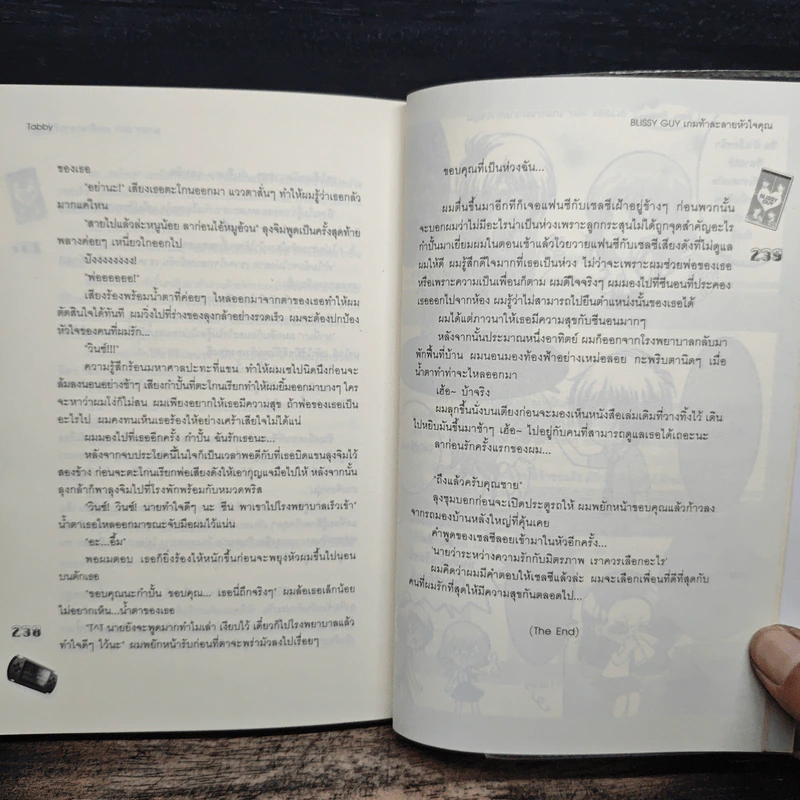 Tabby
ของเธอ
"อย่านะ!" เสียงเธอตะโกนออกมา แววตาสั่นๆ ทำให้ผมรู้ว่าเธอกลัว
มากแค่ไหน
"สายไปแล้วล่ะหนูน้อย ลาก่อนไอ้หมูอ้วน" ลุงจิมพูดเป็นครั้งสุดท้าย
พลางค่อยๆ เหนี่ยวไกออกไป
ปังงงงงงงง!
"พ่ออออออ!"
เสียงร้องพร้อมน้ำตาที่ค่อยๆ ไหลออกมาจากตาของเธอทำให้ผม
ตัดสินใจได้ทันที ผมวิ่งไปที่ร่างของลุงกล้าอย่างรวดเร็ว ผมจะต้องปกป้อง
หัวใจของคนที่ผมรัก...
"วินซ์!!!"
ความรู้สึกร้อนมหาศาลปะทะที่แขน ทำให้ผมเซไปนิดนึงก่อนจะ
ล้มลงนอนอย่างช้าๆ เสียงกำปั้นที่ตะโกนเรียกทำให้ผมยิ้มออกมาบางๆ ใคร
จะหาว่าผมโง่ก็ไม่สน ผมเพียงอยากให้เธอมีความสุข ถ้าพ่อของเธอเป็น
อะไรไป ผมคงทนเห็นเธอร้องไห้อย่างเศร้าเสียใจไม่ได้แน่
ผมมองไปที่เธออีกครั้ง กำปั้น ฉันรักเธอนะ...
หลังจากจบประโยคนี้ในใจก็เป็นเวลาพอดีกับที่เธอบิดแขนลุงจิมไว้
สองข้าง ก่อนจะตะโกนเรียกพ่อเสียงดังให้เอากุญแจมือไปให้ หลังจากนั้น
ลุงกล้าก็พาลุงจิมไปที่โรงพักพร้อมกับหมวดพริส
"วินซ์! วินซ์! นายทำใจดีๆ นะ ซีน พาเขาไปโรงพยาบาลเร็วเข้า"
น้ำตาเธอไหลออกมาขณะจับมือผมไว้แน่น
"อะ...อื้ม"
พอผมตอบ เธอก็ยิ่งร้องไห้หนักขึ้นก่อนจะพยุงหัวผมขึ้นไปนอน
บนตักเธอ
"ขอบคุณนะกำปั้น ขอบคุณ... เธอนี่ถึกจริงๆ" ผมล้อเธอเล็กน้อย
ไม่อยากเห็น...น้ำตาของเธอ
"T^T นายยังจะพูดมากทำไมเล่า เงียบไว้ เดี๋ยวก็ไปโรงพยาบาลแล้ว
ทำใจดีๆ ไว้นะ" ผมพยักหน้ารับก่อนที่ตาจะพร่ามัวลงไปเรื่อยๆ
238
BLISSY GUY เกมท้าละลายหัวใจคุณ
ขอบคุณที่เป็นห่วงฉัน...
ผมตื่นขึ้นมาอีกทีก็เจอแฟนซีกับเซลซีเฝ้าอยู่ข้างๆ ก่อนพวกนั้น
จะบอกผมว่าไม่มีอะไรน่าเป็นห่วงเพราะลูกกระสุนไม่ได้ถูกจุดสำคัญอะไร
กำปั้นมาเยี่ยมผมในตอนเช้าแล้วโวยวายแฟนซีกับเซลซีเสียงดังที่ไม่ดูแล
ผมให้ดี ผมรู้สึกดีใจมากที่เธอเป็นห่วง ไม่ว่าจะเพราะผมช่วยพ่อของเธอ
หรือเพราะความเป็นเพื่อนก็ตาม ผมดีใจจริงๆ ผมมองไปที่ซีนอนที่ประคอง
เธอออกไปจากห้อง ผมรู้ว่าไม่สามารถไปยืนตำแหน่งนั้นของเธอได้
ผมได้แต่ภาวนาให้เธอมีความสุขกับซีนอนมากๆ
หลังจากนั้นประมาณหนึ่งอาทิตย์ ผมก็ออกจากโรงพยาบาลกลับมา
พักฟื้นที่บ้าน ผมนอนมองท้องฟ้าอย่างเหม่อลอย กะพริบตานิดๆ เมื่อ
น้ำตาทำท่าจะไหลออกมา
เฮ้อ~ บ้าจริง
ผมลุกขึ้นนั่งบนเตียงก่อนจะมองเห็นหนังสือเล่มเดิมที่วางทิ้งไว้ เดิน
ไปหยิบมันขึ้นมาช้าๆ เฮ้อ~ ไปอยู่กับคนที่สามารถดูแลเธอได้เถอะนะ
ลาก่อนรักครั้งแรกของผม...
"ถึงแล้วครับคุณชาย"
ลุงชุมบอกก่อนจะเปิดประตูรถให้ ผมพยักหน้าขอบคุณแล้วก้าวลง
จากรถมองบ้านหลังใหญ่ที่คุ้นเคย
คำพูดของเซลซีลอยเข้ามาในหัวอีกครั้ง...
'นายว่าระหว่างความรักกับมิตรภาพ เราควรเลือกอะไร'
ผมคิดว่าผมมีคำตอบให้เซลซีแล้วล่ะ ผมจะเลือกเพื่อนที่ดีที่สุดกับ
คนที่ผมรักที่สุดให้มีความสุขกันตลอดไป...
(The End)
239